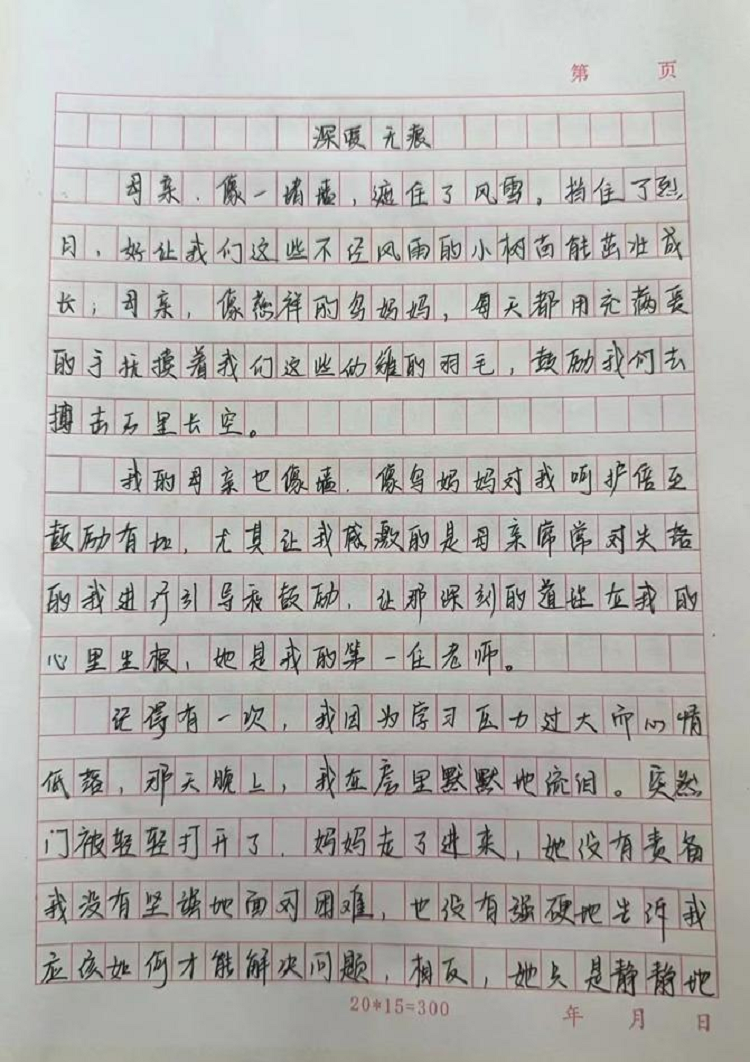 第 页
深暖无痕
母亲，像一堵墙，遮住了风雪。挡住了烈
日，好让我们这些不经风雨的小树苗能茁壮成
长；母亲，像慈祥的鸟妈妈，每天都用充满爱
的手抚摸着我们这些幼雏的羽毛，鼓励我们去
搏击万里长空。
我的母亲也像墙，像鸟妈妈对我呵护倍至
鼓励有加，尤其让我感激的是母亲常常对失落
的我进行引导和鼓励，让那深刻的道理在我的
心里生根，她是我的第一任老师。
记得有一次，我因为学习压力过大而心情
低落，那天晚上，我在房里默默地流泪。突然
门被轻轻打开了，妈妈走了进来，她没有责备
我没有坚强地面对困难，也没有强硬地告诉我
应该如何才能解决问题，相反，她只是静静地
20*15=300 年 月 日